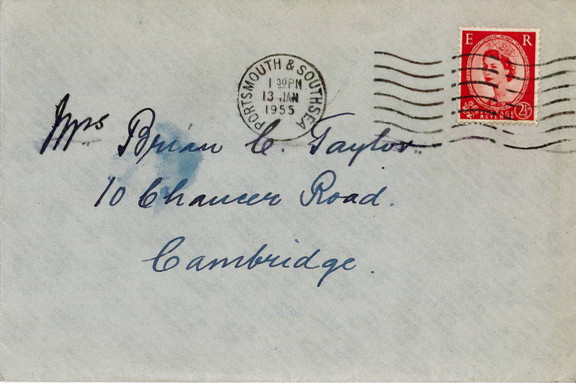 E R
PORTSMOUTH & SOUTHSEA
1 30 PM
13 JAN
1955
POSTAGE REVENUE
2½D
Mrs Brian C. Taylor
10 Chaucer Road.
Cambridge.